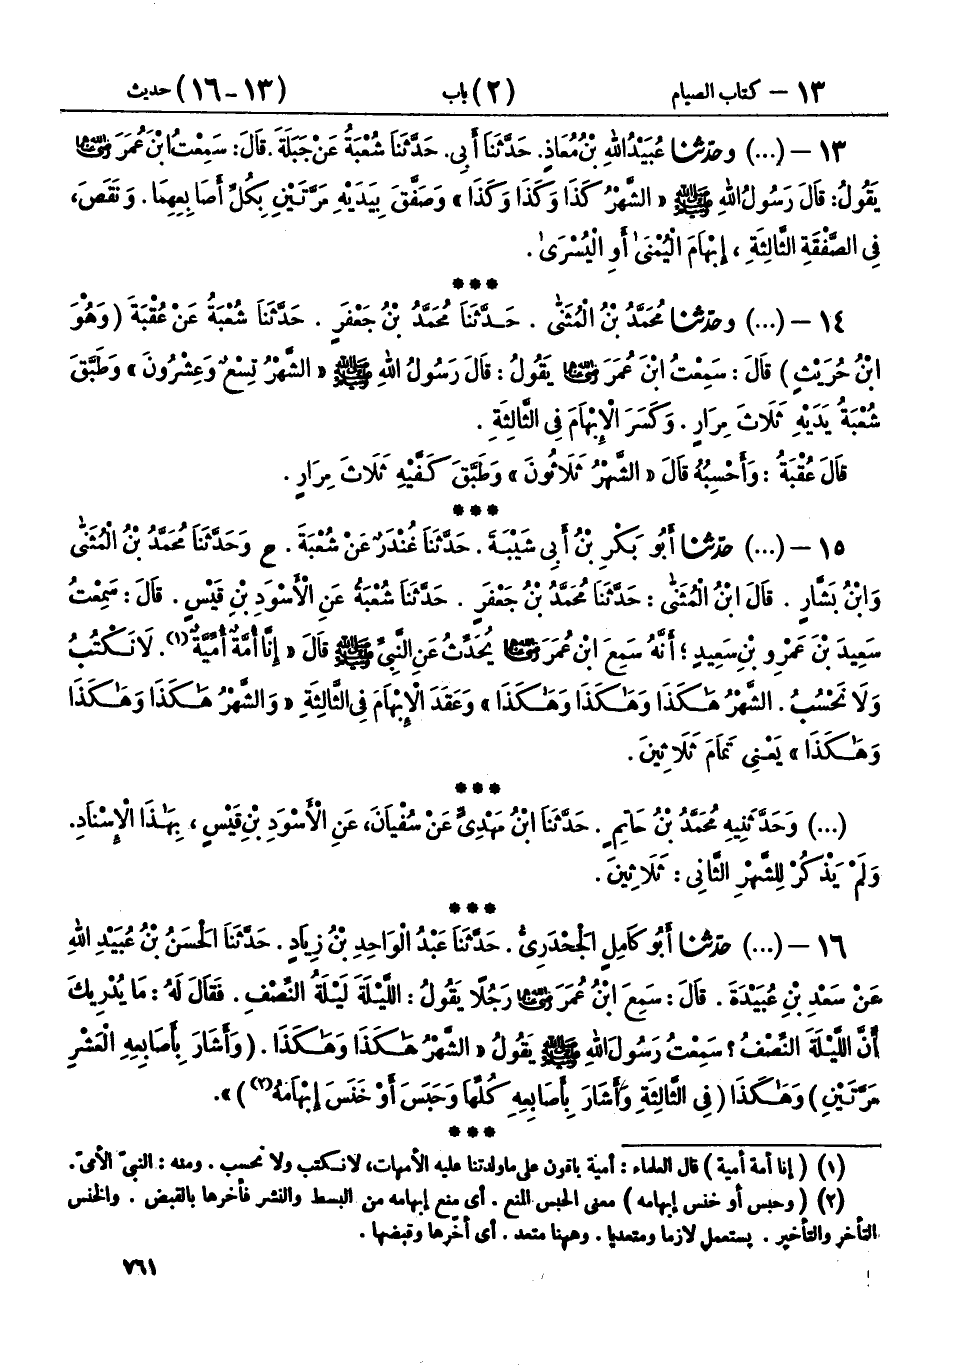 ١٣ – كتاب الصيام (٢) باب (١٣-١٦) حديث
١٣ – (...) وحَدَّثَنَا عُبَيْدُ اللهِ بْنُ مُعَاذٍ. حَدَّثَنَا أَبِي. حَدَّثَنَا شُعْبَةُ عَنْ جَبَلَةَ. قَالَ: سَمِعْتُ ابْنَ عُمَرَ رضي الله عنهما
يَقُولُ: قَالَ رَسُولُ اللهِ ﷺ « الشَّهْرُ كَذَا وَكَذَا وَكَذَا » وَصَفَّقَ بِيَدَيْهِ مَرَّتَيْنِ بِكُلِّ أَصَابِعِهِمَا. وَنَقَصَ،
فِي الصَّفْقَةِ الثَّالِثَةِ ، إِبْهَامَ الْيُمْنَىٰ أَوِ الْيُسْرَىٰ .
***
١٤ – (...) وحَدَّثَنَا مُحَمَّدُ بْنُ الْمُثَنَّىٰ . حَدَّثَنَا مُحَمَّدُ بْنُ جَعْفَرٍ . حَدَّثَنَا شُعْبَةُ عَنْ عُقْبَةَ ( وَهُوَ
ابْنُ حُرَيْثٍ ) قَالَ : سَمِعْتُ ابْنَ عُمَرَ رضي الله عنهما يَقُولُ : قَالَ رَسُولُ اللهِ ﷺ « الشَّهْرُ تِسْعٌ وَعِشْرُونَ » وَطَبَّقَ
شُعْبَةُ يَدَيْهِ ثَلَاثَ مِرَارٍ . وَكَسَرَ الْإِبْهَامَ فِي الثَّالِثَةِ .
قَالَ عُقْبَةُ : وَأَحْسِبُهُ قَالَ « الشَّهْرُ ثَلَاثُونَ » وَطَبَّقَ كَفَّيْهِ ثَلَاثَ مِرَارٍ .
***
١٥ – (...) حَدَّثَنَا أَبُو بَكْرِ بْنُ أَبِي شَيْبَةَ . حَدَّثَنَا غُنْدَرٌ عَنْ شُعْبَةَ . ح وَحَدَّثَنَا مُحَمَّدُ بْنُ الْمُثَنَّىٰ
وَابْنُ بَشَّارٍ . قَالَ ابْنُ الْمُثَنَّىٰ : حَدَّثَنَا مُحَمَّدُ بْنُ جَعْفَرٍ . حَدَّثَنَا شُعْبَةُ عَنِ الْأَسْوَدِ بْنِ قَيْسٍ . قَالَ : سَمِعْتُ
سَعِيدَ بْنَ عَمْرِو بْنِ سَعِيدٍ ؛ أَنَّهُ سَمِعَ ابْنَ عُمَرَ رضي الله عنهما يُحَدِّثُ عَنِ النَّبِيِّ ﷺ قَالَ « إِنَّا أُمَّةٌ أُمِّيَّةٌ (١). لَا نَكْتُبُ
وَلَا نَحْسُبُ . الشَّهْرُ هَٰكَذَا وَهَٰكَذَا وَهَٰكَذَا » وَعَقَدَ الْإِبْهَامَ فِي الثَّالِثَةِ « وَالشَّهْرُ هَٰكَذَا وَهَٰكَذَا
وَهَٰكَذَا » يَعْنِي تَمَامَ ثَلَاثِينَ .
***
(...) وَحَدَّثَنِيهِ مُحَمَّدُ بْنُ حَاتِمٍ . حَدَّثَنَا ابْنُ مَهْدِيٍّ عَنْ سُفْيَانَ، عَنِ الْأَسْوَدِ بْنِ قَيْسٍ ، بِهَٰذَا الْإِسْنَادِ.
وَلَمْ يَذْكُرْ لِلشَّهْرِ الثَّانِي : ثَلَاثِينَ .
***
١٦ – (...) حَدَّثَنَا أَبُو كَامِلٍ الْجَحْدَرِيُّ . حَدَّثَنَا عَبْدُ الْوَاحِدِ بْنُ زِيَادٍ . حَدَّثَنَا الْحَسَنُ بْنُ عُبَيْدِ اللهِ
عَنْ سَعْدِ بْنِ عُبَيْدَةَ . قَالَ : سَمِعَ ابْنُ عُمَرَ رضي الله عنهما رَجُلًا يَقُولُ : اللَّيْلَةَ لَيْلَةُ النِّصْفِ . فَقَالَ لَهُ : مَا يُدْرِيكَ
أَنَّ اللَّيْلَةَ النِّصْفُ ؟ سَمِعْتُ رَسُولَ اللهِ ﷺ يَقُولُ « الشَّهْرُ هَٰكَذَا وَهَٰكَذَا . ( وَأَشَارَ بِأَصَابِعِهِ الْعَشْرِ
مَرَّتَيْنِ ) وَهَٰكَذَا ( فِي الثَّالِثَةِ وَأَشَارَ بِأَصَابِعِهِ كُلِّهَا وَحَبَسَ أَوْ خَنَسَ إِبْهَامَهُ (٢) ) ».
***
(١) ( إنا أمة أمية ) قال العلماء : أمية باقون على ما ولدتنا عليه الأمهات، لا نكتب ولا نحسب . ومنه : النبيّ الأميّ.
(٢) ( وحبس أو خنس إبهامه ) معنى الحبس المنع . أى منع إبهامه من البسط والنشر فأخرها بالقبض . والخنس
التأخر والتأخير . يستعمل لازما ومتعديا . وههنا متعد . أى أخّرها وقبضها .
٧٦١